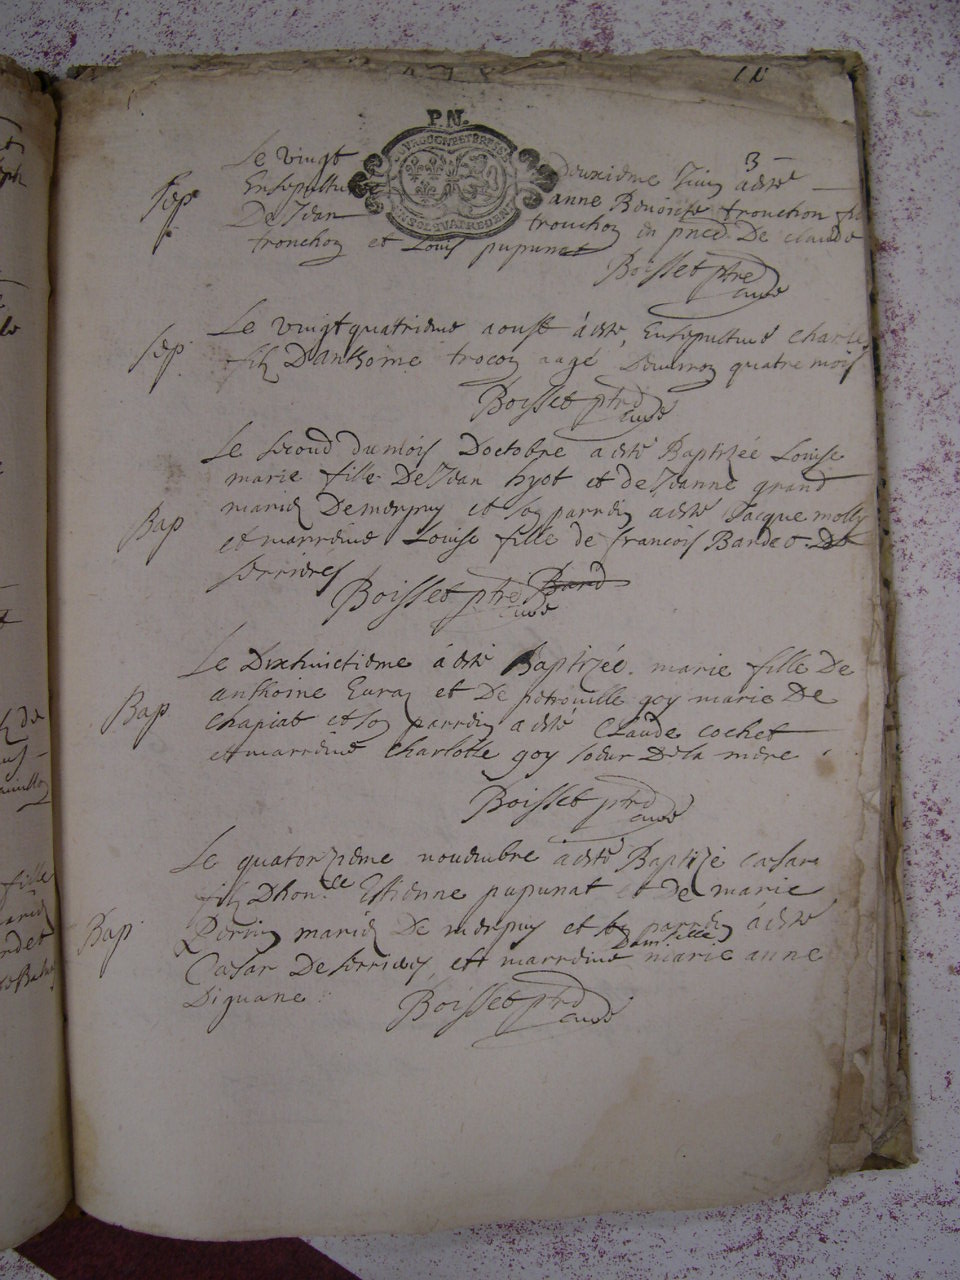 P.N.
BOURGOGNE ET BRESSE
UN SOL QUATRE DEN
3
Le vingt Deuxieme Juin a esté
Sep. Ensepulturée anne Benoiste tronchon fi
De Jean tronchon in pnce De claude
tronchon et Louis pupunat
Boisset ptre
curé
Le vingtquatrieme aoust à esté Ensepulturé charle
Sep. fils D'anthoine trocon aagé Denviron quatre mois
Boisset ptre
curé
Le second dumois Doctobre a esté Baptizée Louise
marie fille De Jean hyot et de Jeanne grand
Bap mariés De merpuy et son parrein a esté Jacque molly
et marreine Louise fille de francois Bardet De
serrieres
Boisset ptre
curé
Le Dixhuictieme à esté Baptizée marie fille De
anthoine Euray et De petronille goy mariés De
Bap chapiat et son parrein a esté Claude cochet
et marreine charlotte goy soeur Dela mere
Boisset ptre
curé
Le quatorzieme novembre à esté Baptizé caesar
fils Dhon.le Estienne pupunat et De marie
Bap Perrin mariés De merpuy et son parrein à esté
Caesar De serrieres et marreine Damlle marie anne
Diguane
Boisset ptre
curé